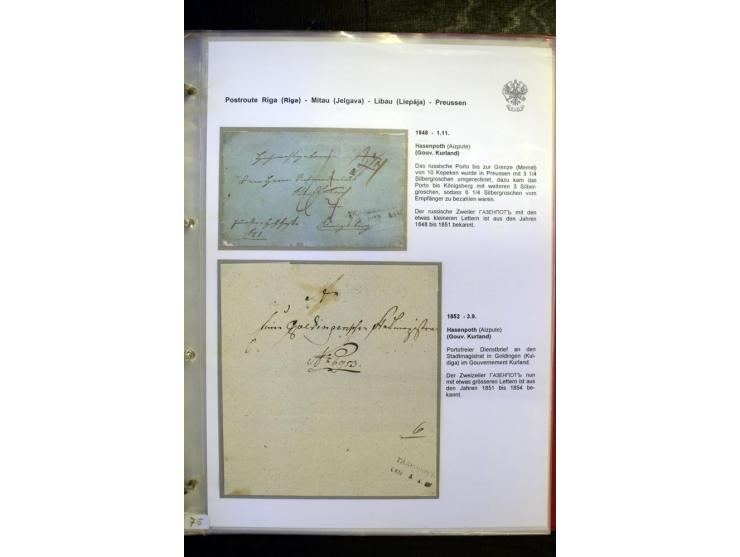 Postroute Riga (Rīga) - Mitau (Jelgava) - Libau (Liepāja) - Preussen
1848 - 1.11.
Hasenpoth (Aizpute)
(Gouv. Kurland)
Das russische Porto bis zur Grenze (Memel)
von 10 Kopeken wurde in Preussen mit 3 1/4
Silbergroschen umgerechnet, dazu kam das
Porto bis Königsberg mit weiteren 3 Silber-
groschen, sodass 6 1/4 Silbergroschen vom
Empfänger zu bezahlen waren.
Der russische Zweiler ГАЗЕНПОТЪ mit den
etwas kleineren Lettern ist aus den Jahren
1848 bis 1851 bekannt.
1852 - 3.9.
Hasenpoth (Aizpute)
(Gouv. Kurland)
Portofreier Dienstbrief an den
Stadtmagistrat in Goldingen (Kul-
diga) im Gouvernement Kurland.
Der Zweizeiler ГАЗЕНПОТЪ nun
mit etwas grösseren Lettern ist aus
den Jahren 1851 bis 1854 be-
kannt.
Goldingenschen
6
75